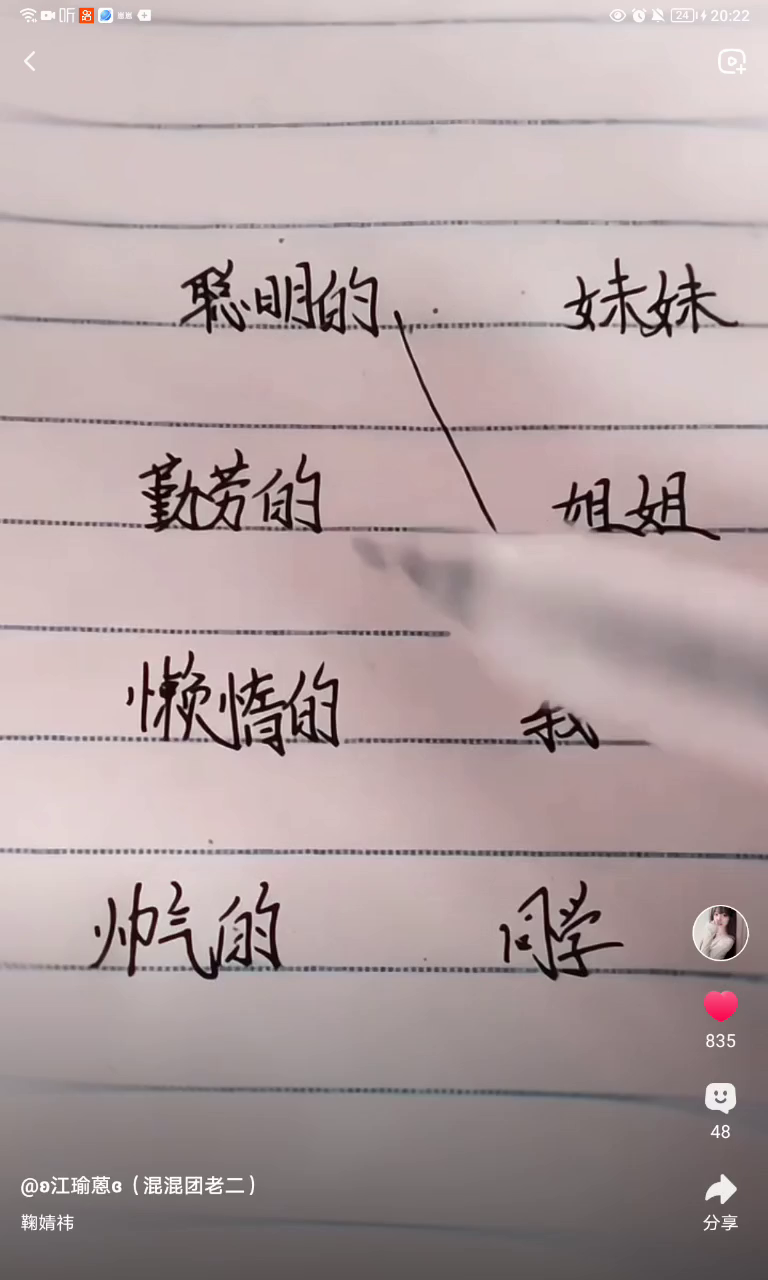 听 24 20:22
聪明的 妹妹
勤劳的 姐姐
懒惰的 我
帅气的 同学
835
48
@ʚ江瑜蒽ɞ（混混团老二）
鞠婧祎 分享